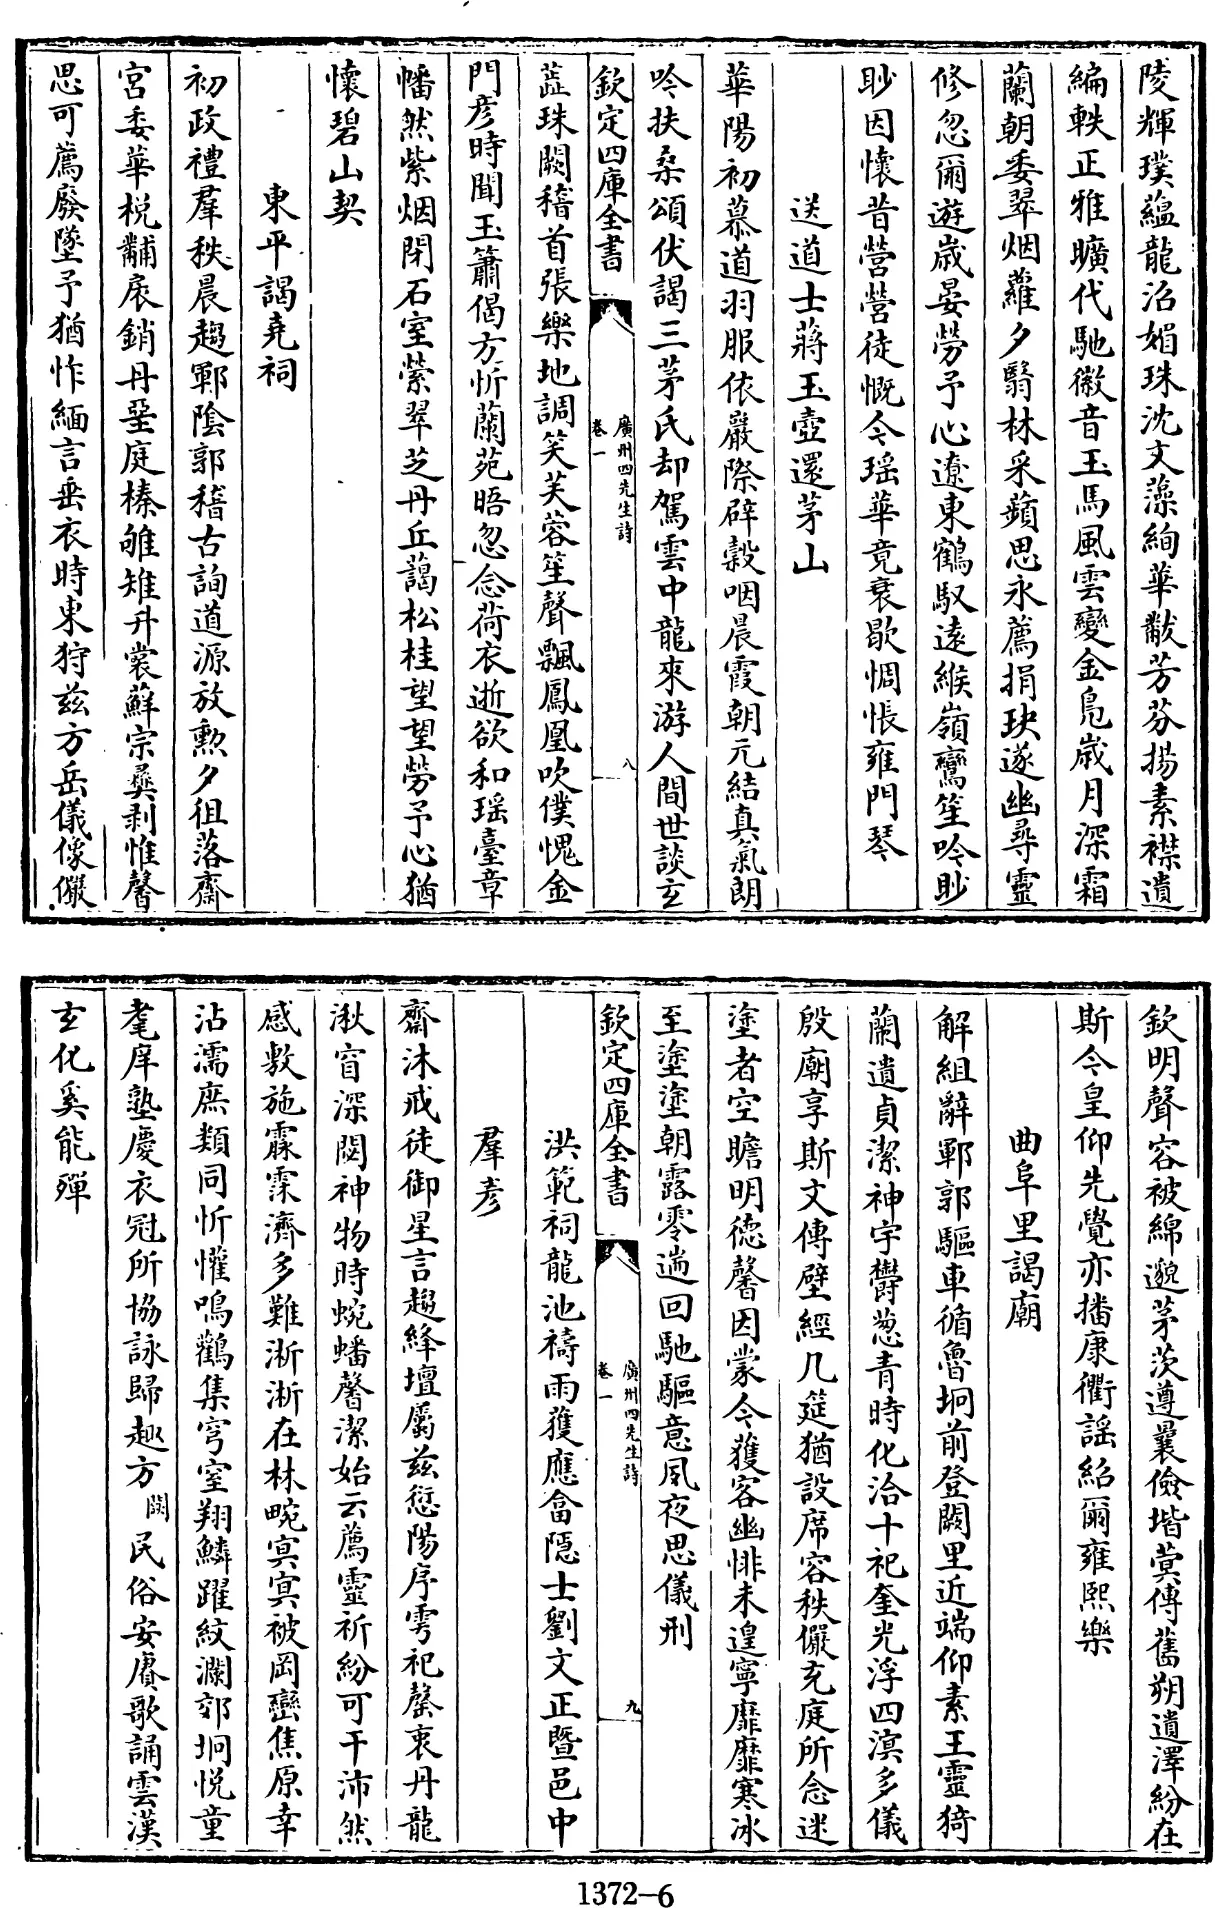 陵輝璞蘊龍沿媚珠沈文藻絢華黻芳芬揚素襟遺
編軼正雅曠代馳徽音玉馬風雲變金鳬歲月深霜
蘭朝委翠烟蘿夕翳林采蘋思永薦捐玦遂幽尋靈
修忽爾遊歲晏勞予心遼東鶴馭遠緱嶺鸞笙吟眇
眇因懷昔營營徒慨今瑶華竟衰歇惆悵雍門琴
送道士蔣玉壺還茅山
華陽初慕道羽服依巖際辟穀咽晨霞朝元結真氣朗
吟扶桑頌伏謁三茅氏却駕雲中龍來游人間世談玄
欽定四庫全書
廣州四先生詩
卷一
八
蕋珠闕稽首張樂地調笑芙蓉笙聲飄鳳凰吹僕愧金
門彦時聞玉簫偈方忻蘭苑晤忽念荷衣逝欲和瑶臺章
幡然紫烟閉石室縈翠芝丹丘藹松桂望望勞予心猶
懷碧山契
東平謁堯祠
初政禮羣秩晨趨鄆隂郭稽古詢道源放勲夕徂落齋
宮委華梲黼扆銷丹堊庭榛雊雉升裳蘚宗彞剥惟馨
思可薦廢墜予猶怍緬言垂衣時東狩兹方岳儀像儼
欽明聲容被綿邈茅茨遵曩儉堦蓂傳舊朔遺澤紛在
斯今皇仰先覺亦播康衢謡紹爾雍熙樂
曲阜里謁廟
解組辭鄆郭驅車循魯坰前登闕里近端仰素王靈猗
蘭遺貞潔神宇欝葱青時化洽十祀奎光浮四溟多儀
殷廟享斯文傳壁經几筵猶設席容秩儼充庭所念迷
塗者空瞻明德馨因蒙今獲客幽悱未遑寧靡靡寒冰
至塗塗朝露零遄回馳驅意夙夜思儀刑
欽定四庫全書
廣州四先生詩
卷一
九
洪範祠龍池禱雨獲應畣隱士劉文正暨邑中
羣彦
齋沐戒徒御星言趨絳壇屬兹愆陽序雩祀罄衷丹龍
湫窅深閟神物時蜿蟠馨潔始云薦靈祈紛可干沛然
感敷施霡霂濟多難淅淅在林畹冥冥被岡巒焦原幸
沾濡庶類同忻懽鳴鸛集穹室翔鱗躍紋瀾郊坰悦童
耄庠塾慶衣冠所協詠歸趣方闕民俗安賡歌誦雲漢
玄化奚能殫
1372-6